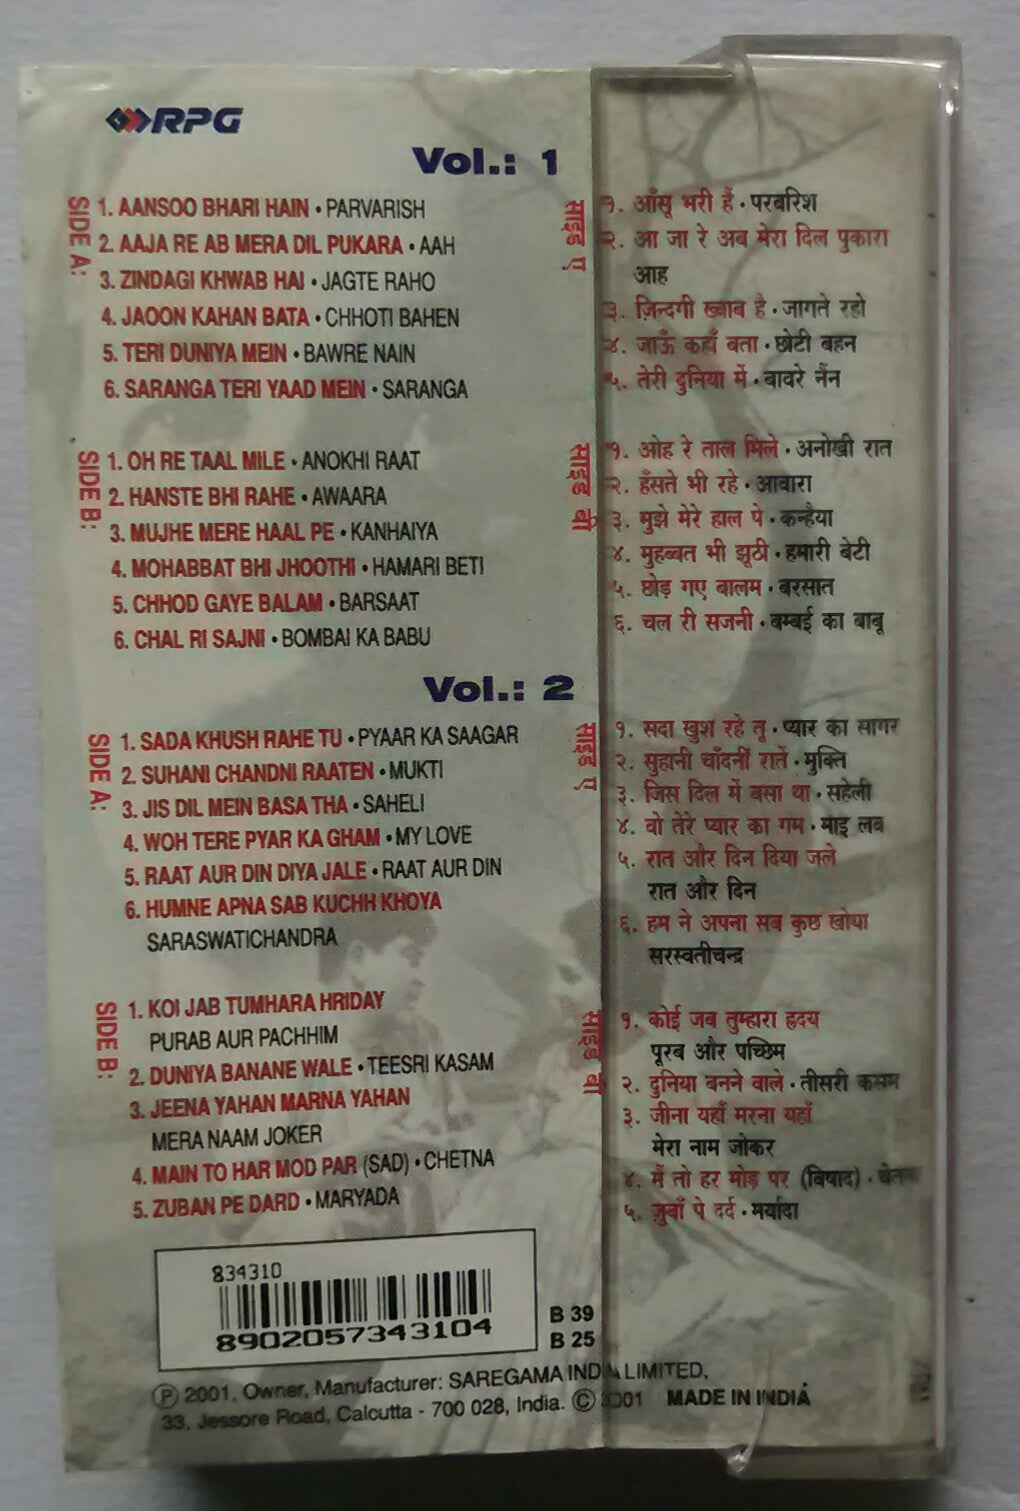 RPG
Vol.: 1
SIDE A:
1. AANSOO BHARI HAIN • PARVARISH
2. AAJA RE AB MERA DIL PUKARA • AAH
3. ZINDAGI KHWAB HAI • JAGTE RAHO
4. JAOON KAHAN BATA • CHHOTI BAHEN
5. TERI DUNIYA MEIN • BAWRE NAIN
6. SARANGA TERI YAAD MEIN • SARANGA
SIDE B:
1. OH RE TAAL MILE • ANOKHI RAAT
2. HANSTE BHI RAHE • AWAARA
3. MUJHE MERE HAAL PE • KANHAIYA
4. MOHABBAT BHI JHOOTHI • HAMARI BETI
5. CHHOD GAYE BALAM • BARSAAT
6. CHAL RI SAJNI • BOMBAI KA BABU
साइड ए
१. आँसू भरी हैं • परबरिश
२. आ जा रे अब मेरा दिल पुकारा
आह
३. ज़िन्दगी ख्वाब है • जागते रहो
४. जाऊँ कहाँ बता • छोटी बहन
५. तेरी दुनिया में • बावरे नैंन
साइड बी
१. ओह रे ताल मिले • अनोखी रात
२. हँसते भी रहे • आवारा
३. मुझे मेरे हाल पे • कन्हैया
४. मुहब्बत भी झूठी • हमारी बेटी
५. छोड़ गए बालम • बरसात
६. चल री सजनी • बम्बई का बाबू
Vol.: 2
SIDE A:
1. SADA KHUSH RAHE TU • PYAAR KA SAAGAR
2. SUHANI CHANDNI RAATEN • MUKTI
3. JIS DIL MEIN BASA THA • SAHELI
4. WOH TERE PYAR KA GHAM • MY LOVE
5. RAAT AUR DIN DIYA JALE • RAAT AUR DIN
6. HUMNE APNA SAB KUCHH KHOYA
SARASWATICHANDRA
SIDE B:
1. KOI JAB TUMHARA HRIDAY
PURAB AUR PACHHIM
2. DUNIYA BANANE WALE • TEESRI KASAM
3. JEENA YAHAN MARNA YAHAN
MERA NAAM JOKER
4. MAIN TO HAR MOD PAR (SAD) • CHETNA
5. ZUBAN PE DARD • MARYADA
साइड ए
१. सदा खुश रहे तू • प्यार का सागर
२. सुहानी चाँदनीं रातें • मुक्ति
३. जिस दिल में बसा था • सहेली
४. वो तेरे प्यार का गम • माइ लव
५. रात और दिन दिया जले
रात और दिन
६. हम ने अपना सब कुछ खोया
सरस्वतीचन्द्र
साइड बी
१. कोई जब तुम्हारा ह्रदय
पूरब और पच्छिम
२. दुनिया बनने वाले • तीसरी कसम
३. जीना यहाँ मरना यहाँ
मेरा नाम जोकर
४. मैं तो हर मोड़ पर (विषाद) •
५. जुबाँ पे दर्द • मर्यादा
834310
8902057343104
B 39
B 25
Ⓟ 2001, Owner, Manufacturer: SAREGAMA INDIA LIMITED,
33, Jessore Road, Calcutta - 700 028, India. © 2001 MADE IN INDIA